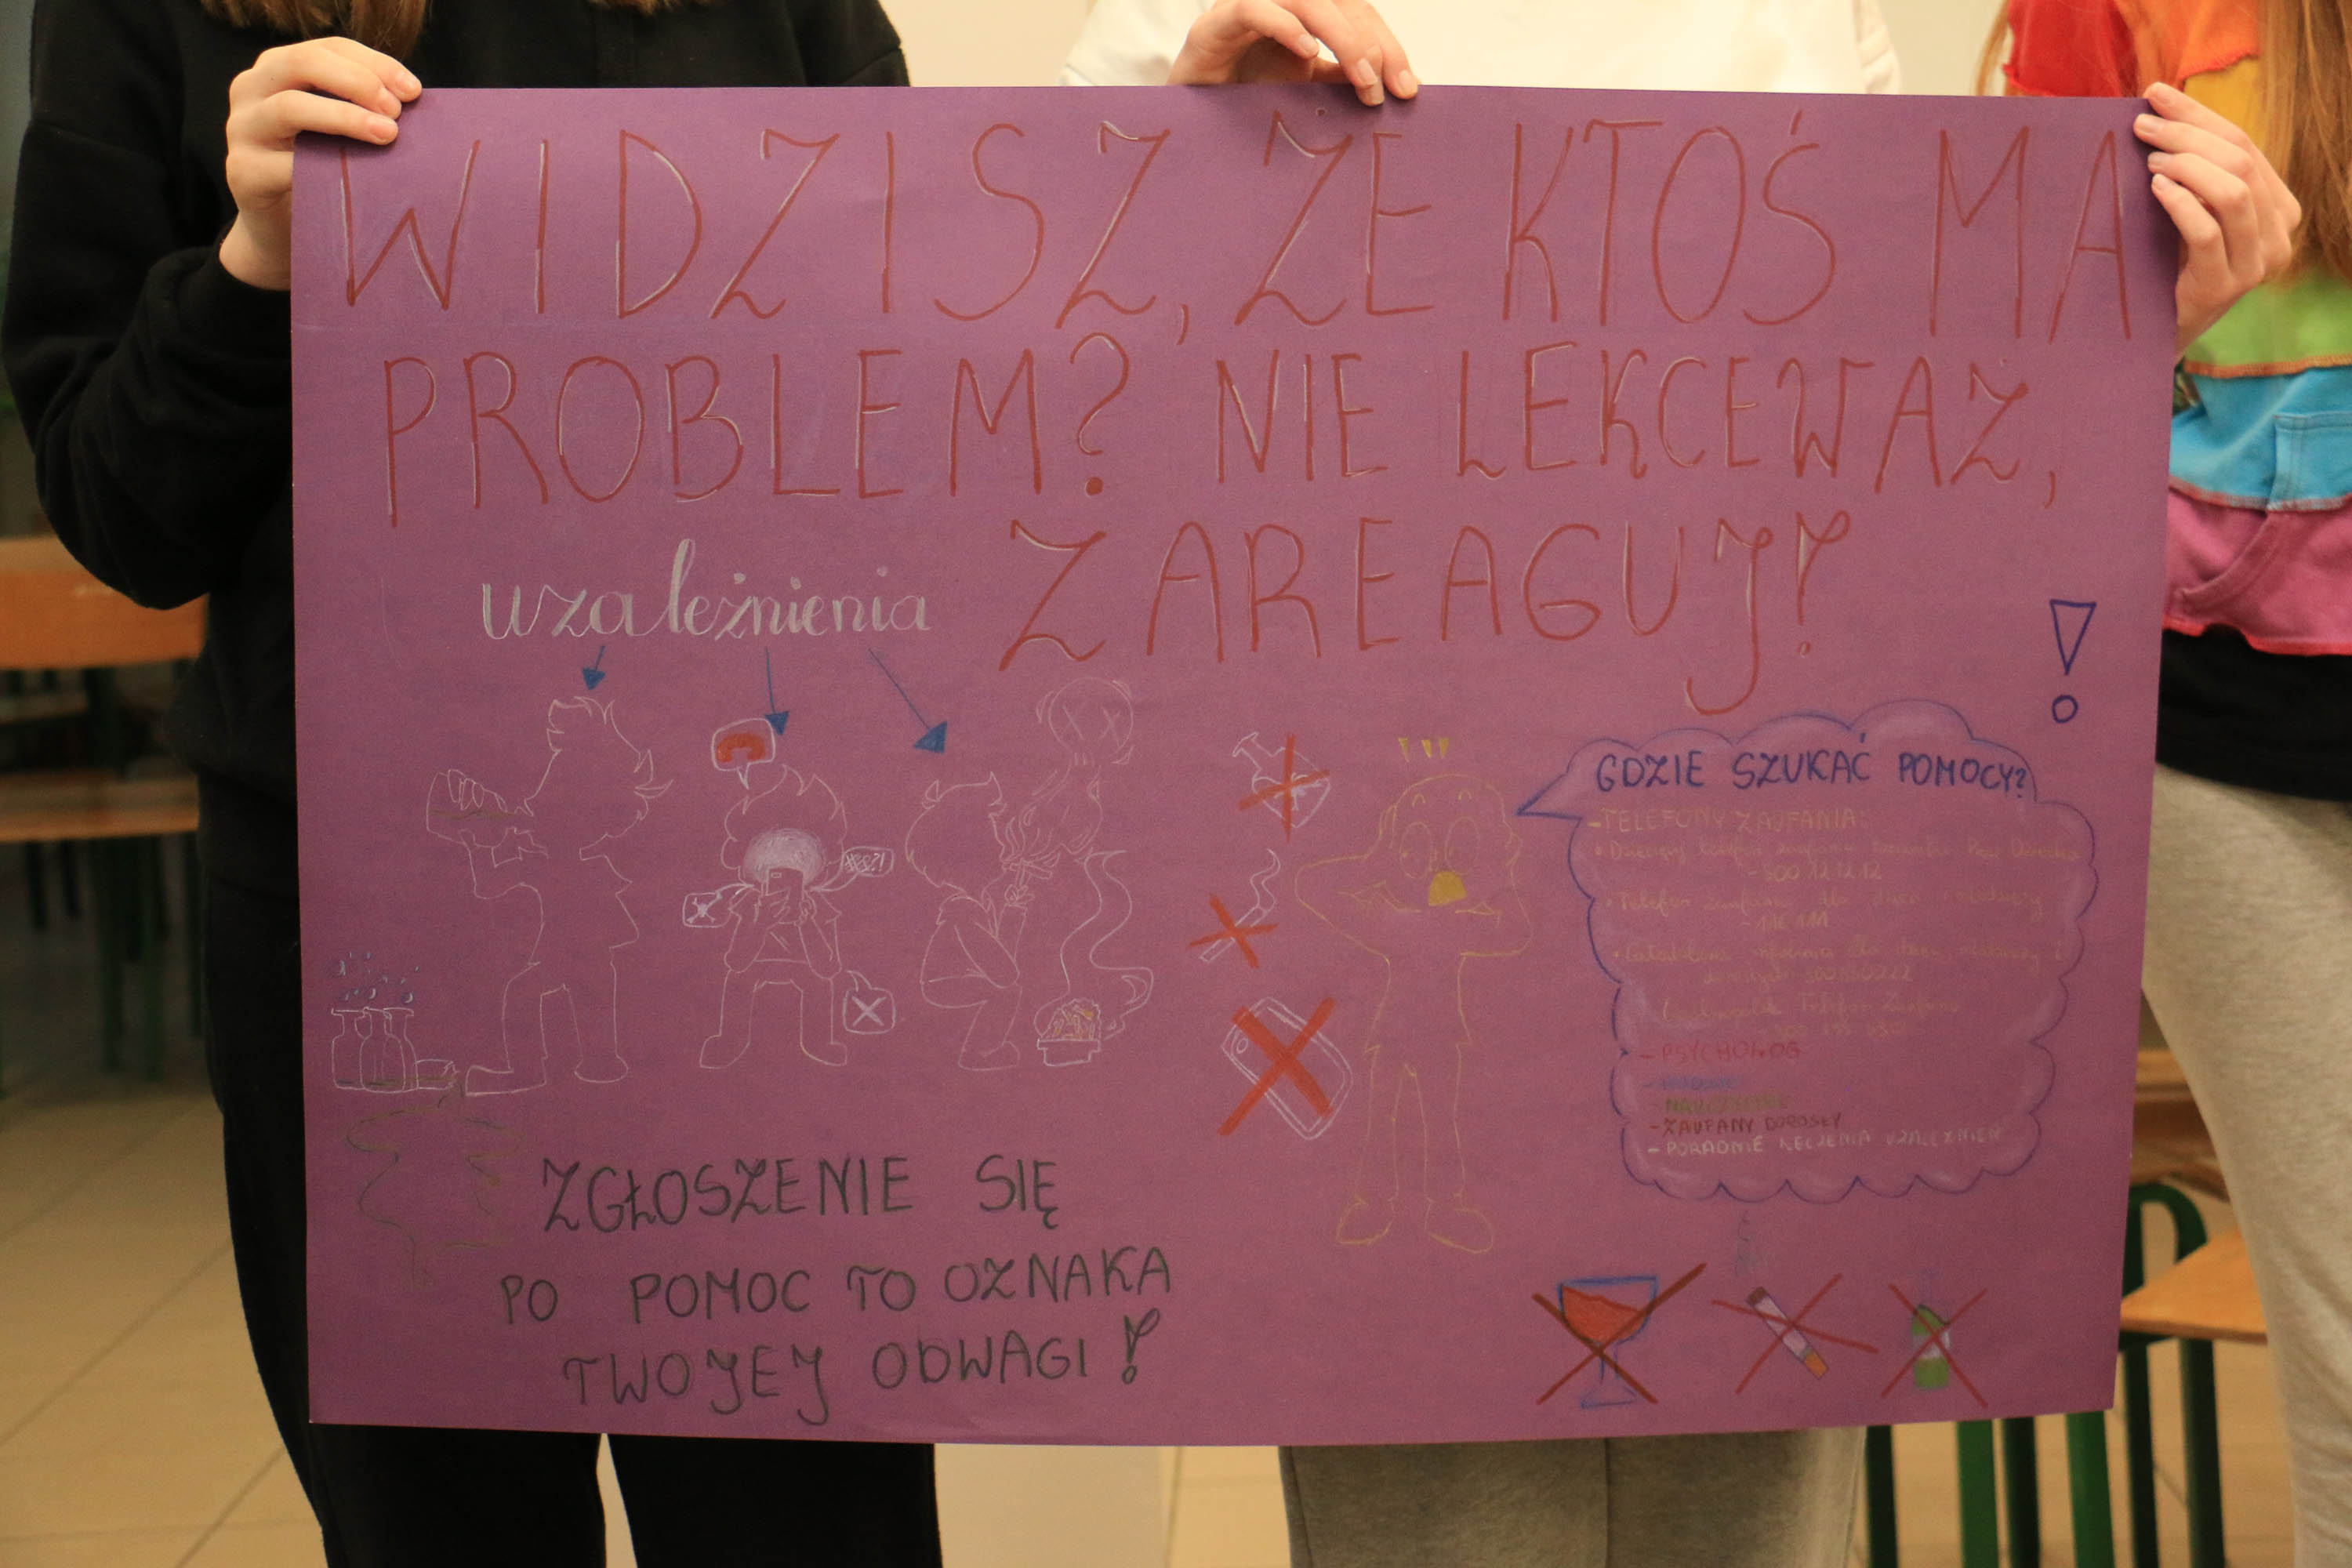 WIDZISZ, ŻE KTOŚ MA
PROBLEM? NIE LEKCEWAŻ,
ZAREAGUJ!
uzależnienia
#&?!
GDZIE SZUKAĆ POMOCY?
- TELEFONY ZAUFANIA:
• Dziecięcy telefon zaufania Rzecznika Praw Dziecka
- 800 12 12 12
• Telefon zaufania dla dzieci i młodzieży
- 116 111
Telefon Zaufania
- PSYCHOLOG
- ZAUFANY DOROSŁY
- PORADNIE LECZENIA UZALEŻNIEŃ
ZGŁOSZENIE SIĘ
PO POMOC TO OZNAKA
TWOJEJ ODWAGI!